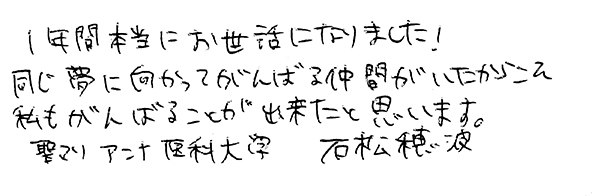 1年間本当にお世話になりました!
同じ夢に向かってがんばる仲間がいたからこそ
私もがんばることが出来たと思います。
聖マリアンナ医科大学 石松穂波